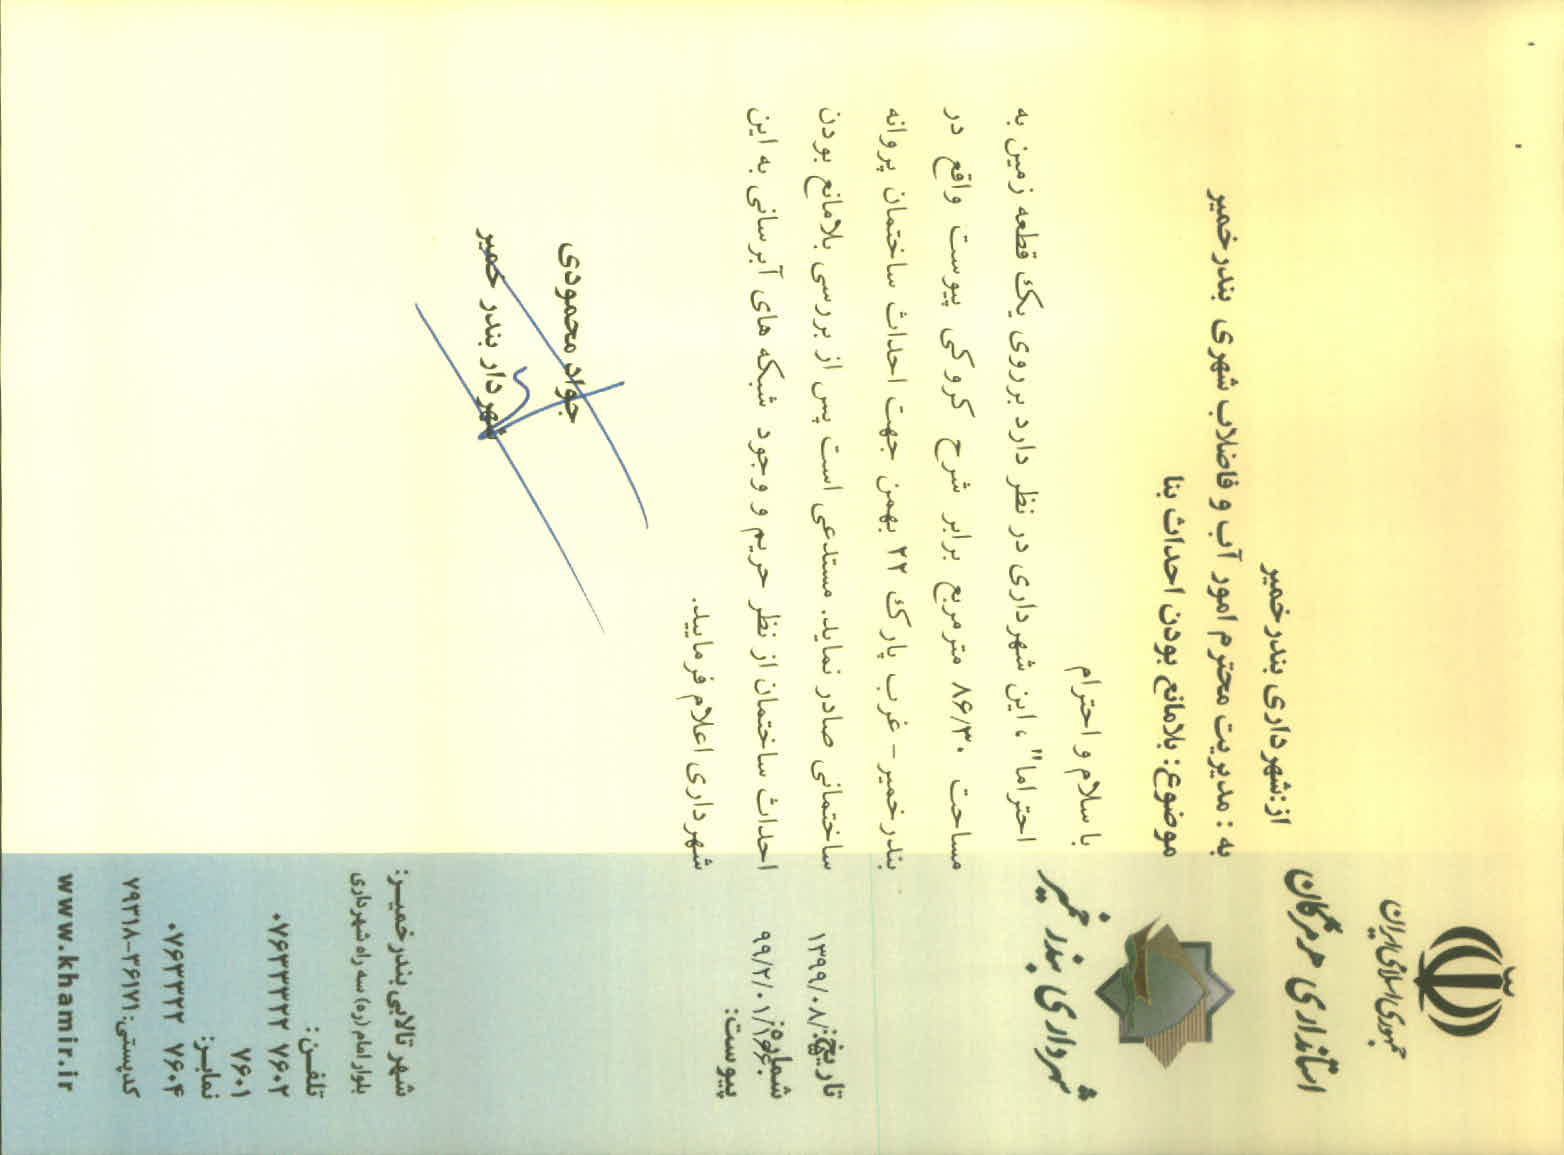 جمهوری اسلامی ایران
استانداری هرمزگان
شهرداری بندر خمیر
تاریخ: ۱۳۹۹/۰۸/
شماره: ۹۹/۲/۰۱/
پیوست:
از:شهرداری بندرخمیر
به : مدیریت محترم امور آب و فاضلاب شهری بندرخمیر
موضوع: بلامانع بودن احداث بنا
با سلام و احترام
احتراما" ، این شهرداری در نظر دارد برروی یک قطعه زمین به
مساحت ۸۶/۳۰ مترمربع برابر شرح کروکی پیوست واقع در
بندرخمیر- غرب پارک ۲۲ بهمن جهت احداث ساختمان پروانه
ساختمانی صادر نماید. مستدعی است پس از بررسی بلامانع بودن
احداث ساختمان از نظر حریم و وجود شبکه های آبرسانی به این
شهرداری اعلام فرمایید.
جواد محمودی
شهردار بندر خمیر
شهر تالابی بندرخمیر:
بلوار امام (ره) سه راه شهرداری
تلفن :
۰۷۶۳۳۲۲ ۷۶۰۲
۷۶۰۱
نمابر:
۰۷۶۳۳۲۲ ۷۶۰۴
کدپستی: ۳۶۱۷۱-۷۹۳۱۸
www.khamir.ir